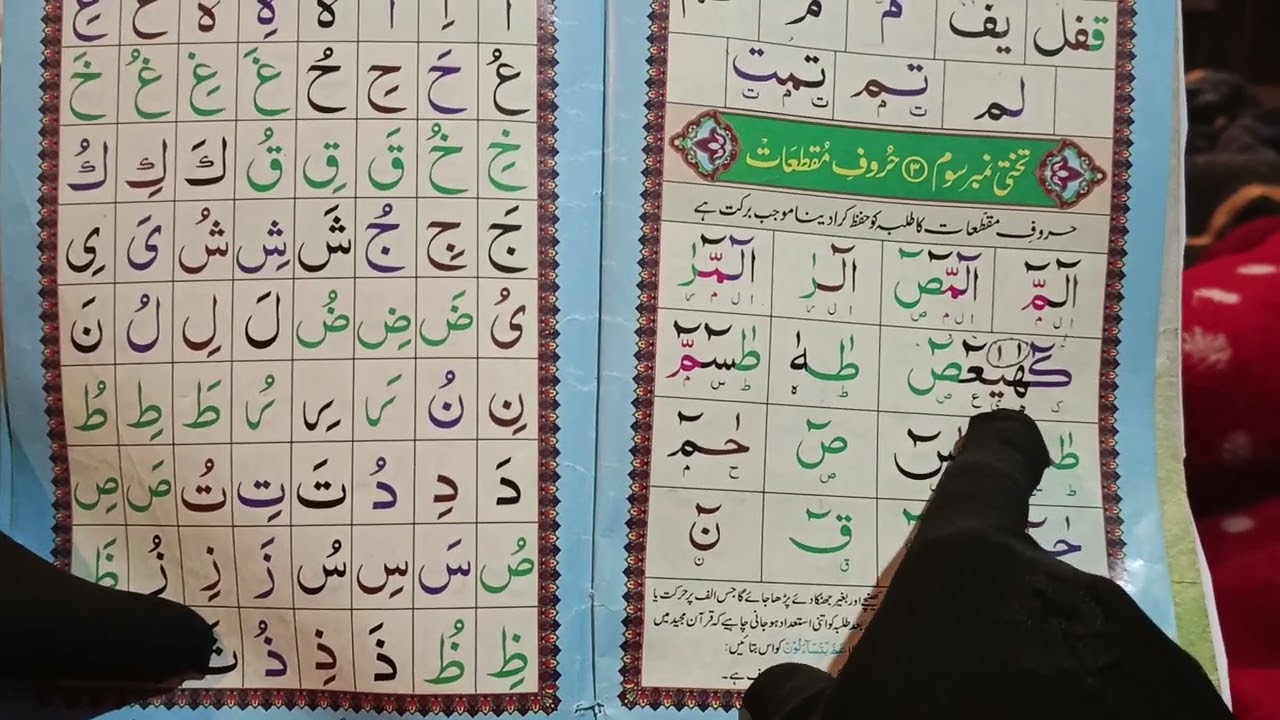 قفل يف م م
لم تم تمت
ت م ت م ت
تختی نمبر سوم ٣ حُروفِ مُقطعَاتْ
حروفِ مقطعات کا طلبہ کو حفظ کرا دینا موجب برکت ہے
الٓمّٓ الٓمّٓصٓ الٓرٰ الٓمّٓرٰ
ا ل م ا ل م ص ا ل ر ا ل م ر
كٓهٰيٰعٓصٓ طٰهٰ طٰسٓمّٓ
ک ع ص ط ہ ط س م
صٓ حٰمٓ
ط ص ح م
قٓ نٓ
ق ن
اور بغیر جھٹکا دے پڑھا جائے گا جس الف پر حرکت یا
بعد طلبہ کو اتنی استعداد ہو جانی چاہیے کہ قرآن مجید میں
عَمَّ يَتَسَآءَلُوْنَ کو اس بتائیں:
ہے۔
عُ حَ حِ حُ غَ غِ غُ خَ
خِ خُ قَ قِ قُ كَ كِ كُ
جَ جِ جُ شَ شِ شُ يَ يِ
يُ ضَ ضِ ضُ لَ لِ لُ نَ
نِ نُ رَ رِ رُ طَ طِ طُ
دَ دِ دُ تَ تِ تُ صَ صِ
صُ سَ سِ سُ زَ زِ زُ ظَ
ظِ ظُ ذَ ذِ ذُ